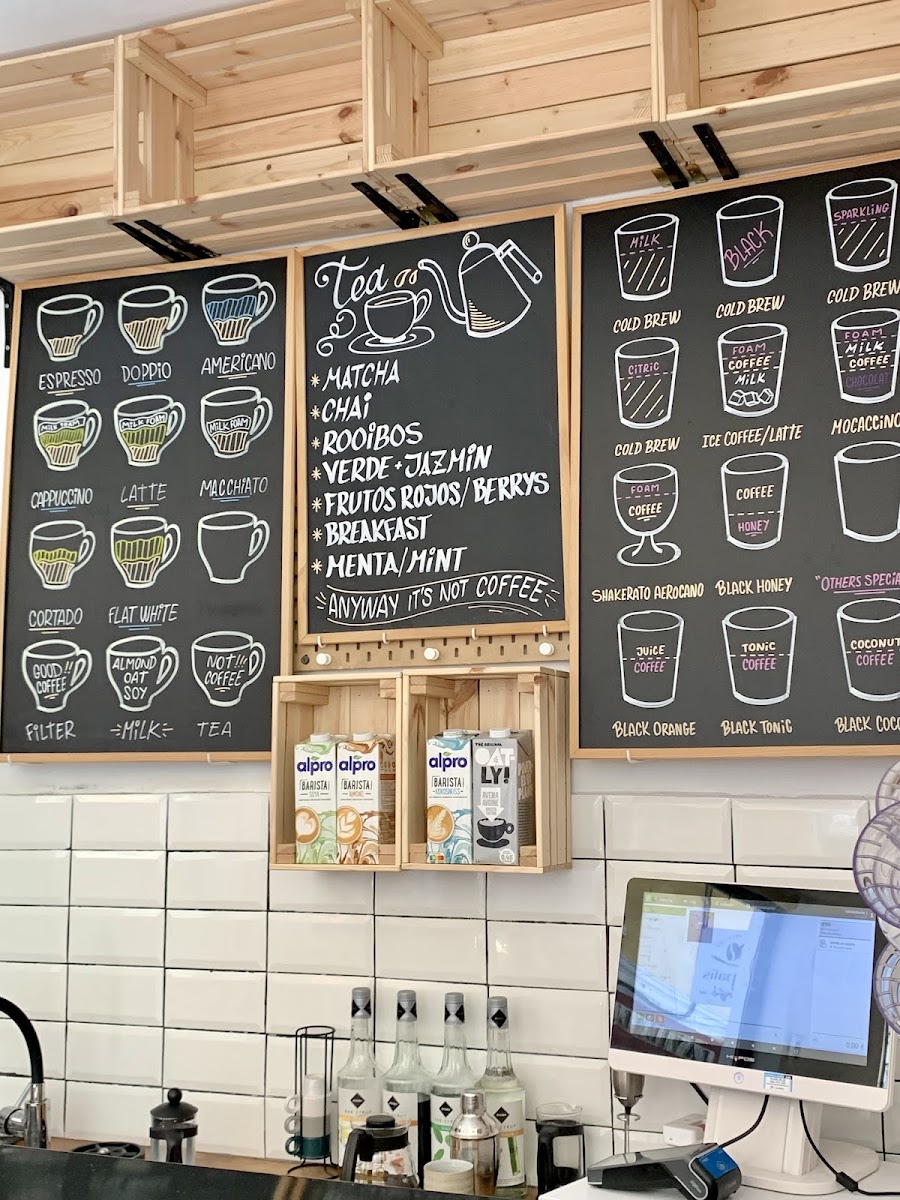 ESPRESSO
DOPPIO
AMERICANO
MILK FOAM
MILK FOAM
MILK FOAM
CAPPUCCINO
LATTE
MACCHIATO
CORTADO
FLAT WHITE
GOOD!!
COFFEE
ALMOND
OAT
SOY
NOT!!!
COFFEE
FILTER
MILK
TEA
Tea
* MATCHA
* CHAI
* ROOIBOS
* VERDE + JAZMIN
* FRUTOS ROJOS/BERRYS
* BREAKFAST
* MENTA/MINT
ANYWAY IT'S NOT COFFEE
MILK
COLD BREW
BLACK
COLD BREW
SPARKLING
COLD BREW
CITRIC
COLD BREW
FOAM
COFFEE
MILK
ICE COFFEE/LATTE
FOAM
MILK
COFFEE
CHOCOLAT
MOCACCINO
FOAM
COFFEE
SHAKERATO AEROCANO
COFFEE
HONEY
BLACK HONEY
"OTHERS SPECIA
JUICE
COFFEE
BLACK ORANGE
TONIC
COFFEE
BLACK TONIC
COCONUT
COFFEE
BLACK COCO
alpro
BARISTA
SOYA
alpro
BARISTA
ALMOND
alpro
BARISTA
KOKOSNUSS
THE ORIGINAL
OAT-
LY!
AVENA
AVOINE
palis
0,00 €
HIOPOS